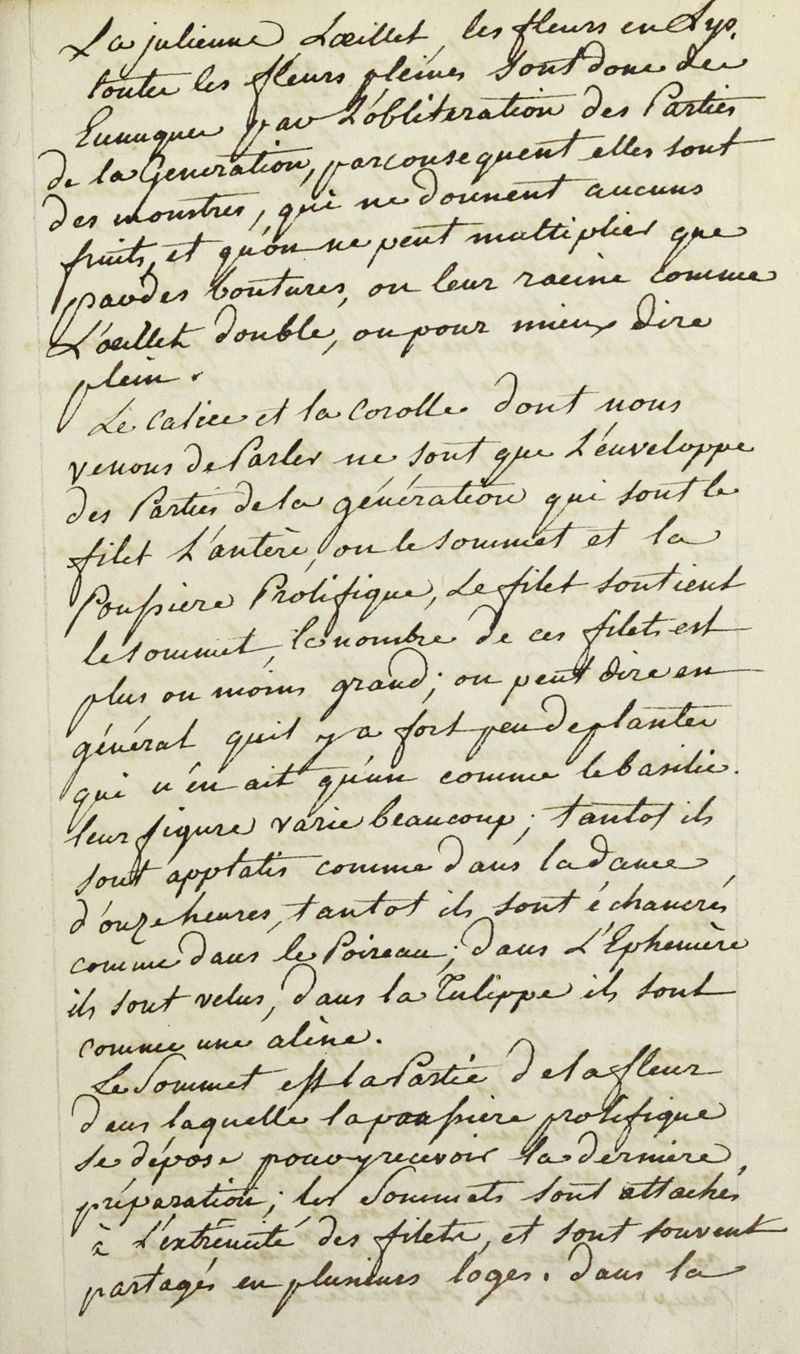 La julienne, L'œillet, les fleurs en Lys.
toutes les fleurs pleines sont donc des
Eunuques par L'obliteration des Parties
de la Generation, parconsequent elles sont
des monstres, qui ne donnent aucuns
fruits, et qu'on ne peut multiplier que
par des boutures, ou leur racine comme
L'œillet double, ou pour mieux dire
plein.
Le calice et la corolle dont nous
venons de Parler ne sont que L'enveloppe
des Parties de la génération qui sont le
filet L'antère, ou le sommet et la
Poussiere Prolifique, Le filet soutient
le sommet, le nombre de ces filets est
plus ou moins grand; on peut dire en
général quil y a fort peu de plantes
qui n'en ait qu'un comme le basilic.
leur figure varie beaucoup; tantot ils
sont applatis comme dans la dame
d'onze heures, tantot ils sont échancrés
comme dans le Poireau; dans L'Ephemère
ils sont velus, dans la Tulippe ils sont
comme une alène.
Le Sommet est la Partie de la fleur
dans laquelle la poussiere prolifique
se dépose pour y recevoir la derniere
préparation; les Sommets sont attachés
à L'extrémité des filets, et sont souvent
partagés en plusieurs loges. dans la